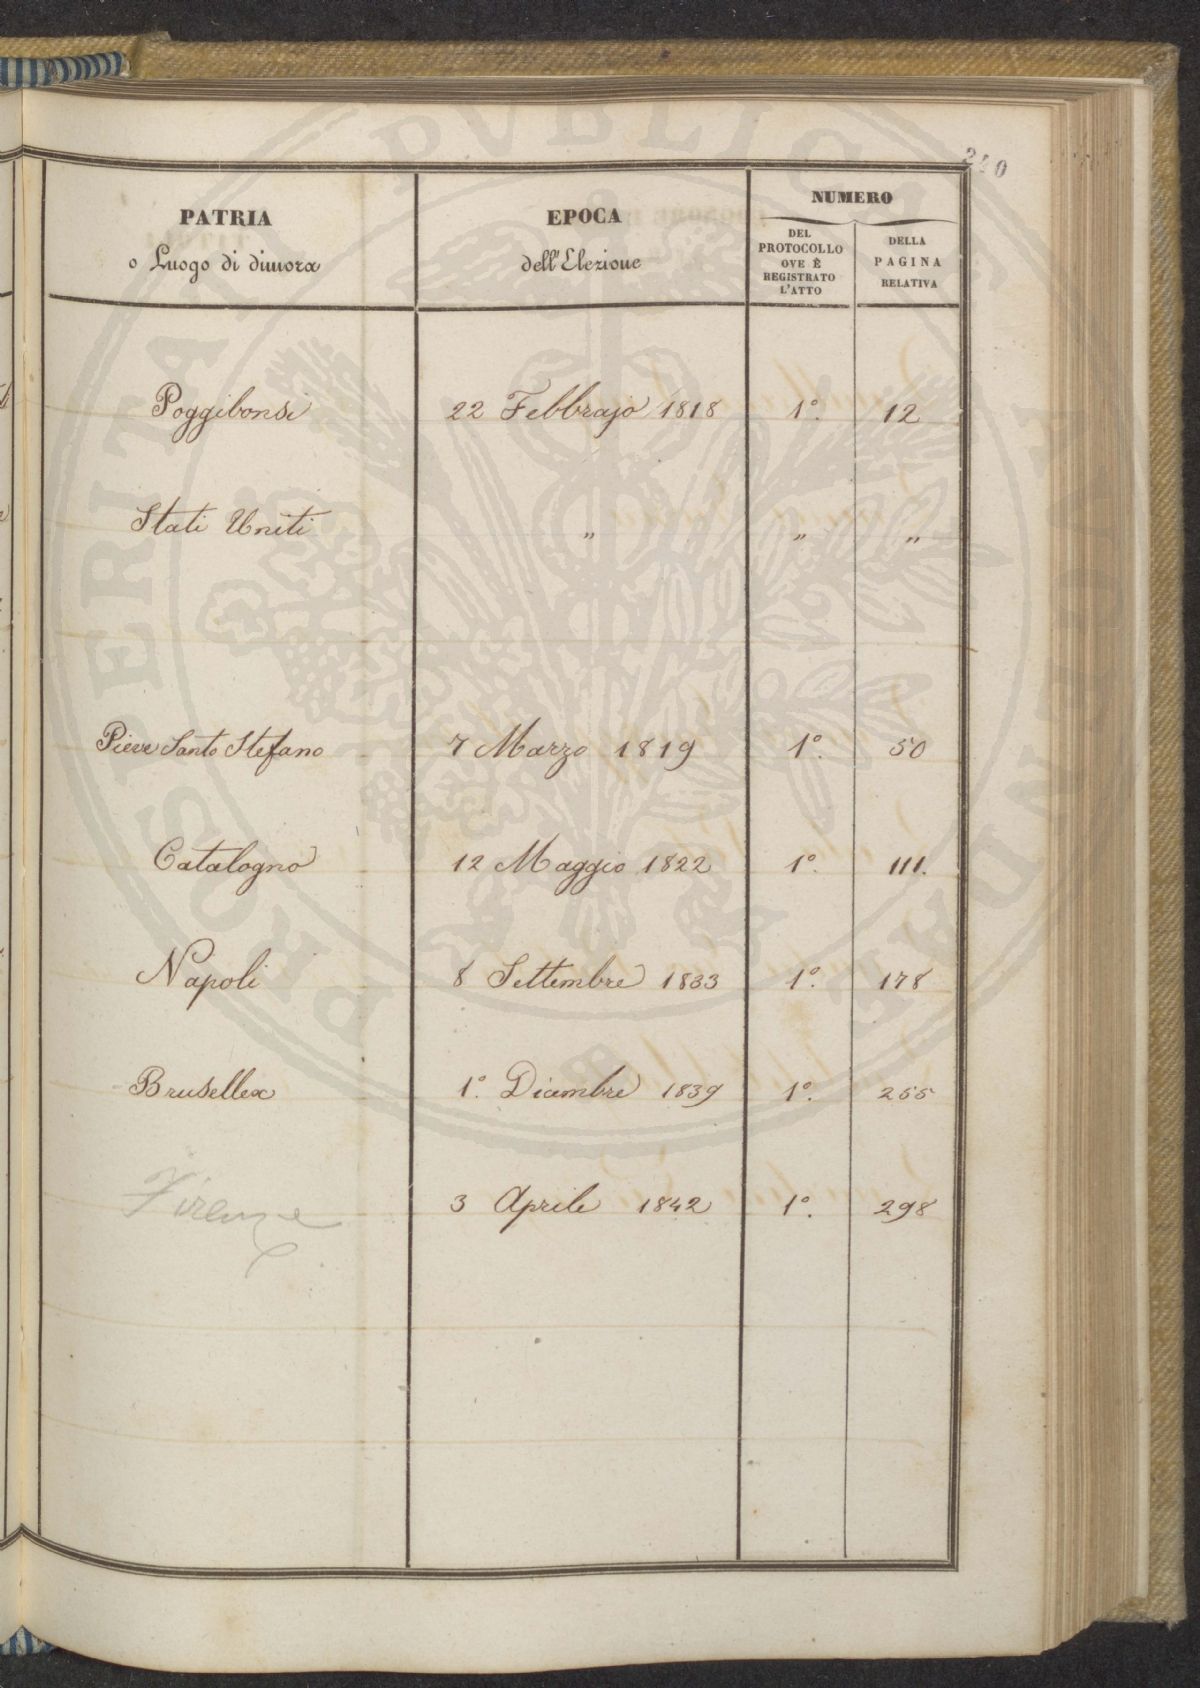 210
PATRIA
o Luogo di dimora
EPOCA
dell'Elezione
NUMERO
DEL
PROTOCOLLO
OVE È
REGISTRATO
L'ATTO
DELLA
PAGINA
RELATIVA
Poggibonsi 22 Febbrajo 1818 1°. 12
Stati Uniti " " "
Pieve Santo Stefano 7 Marzo 1819 1°. 50
Catalogno 12 Maggio 1822 1°. 111.
Napoli 8 Settembre 1833 1°. 178
Brusellex 1°. Dicembre 1839 1°. 255
Firenze 3 Aprile 1842 1°. 298
PROSPERITATI PVBLICAE AVGENDAE